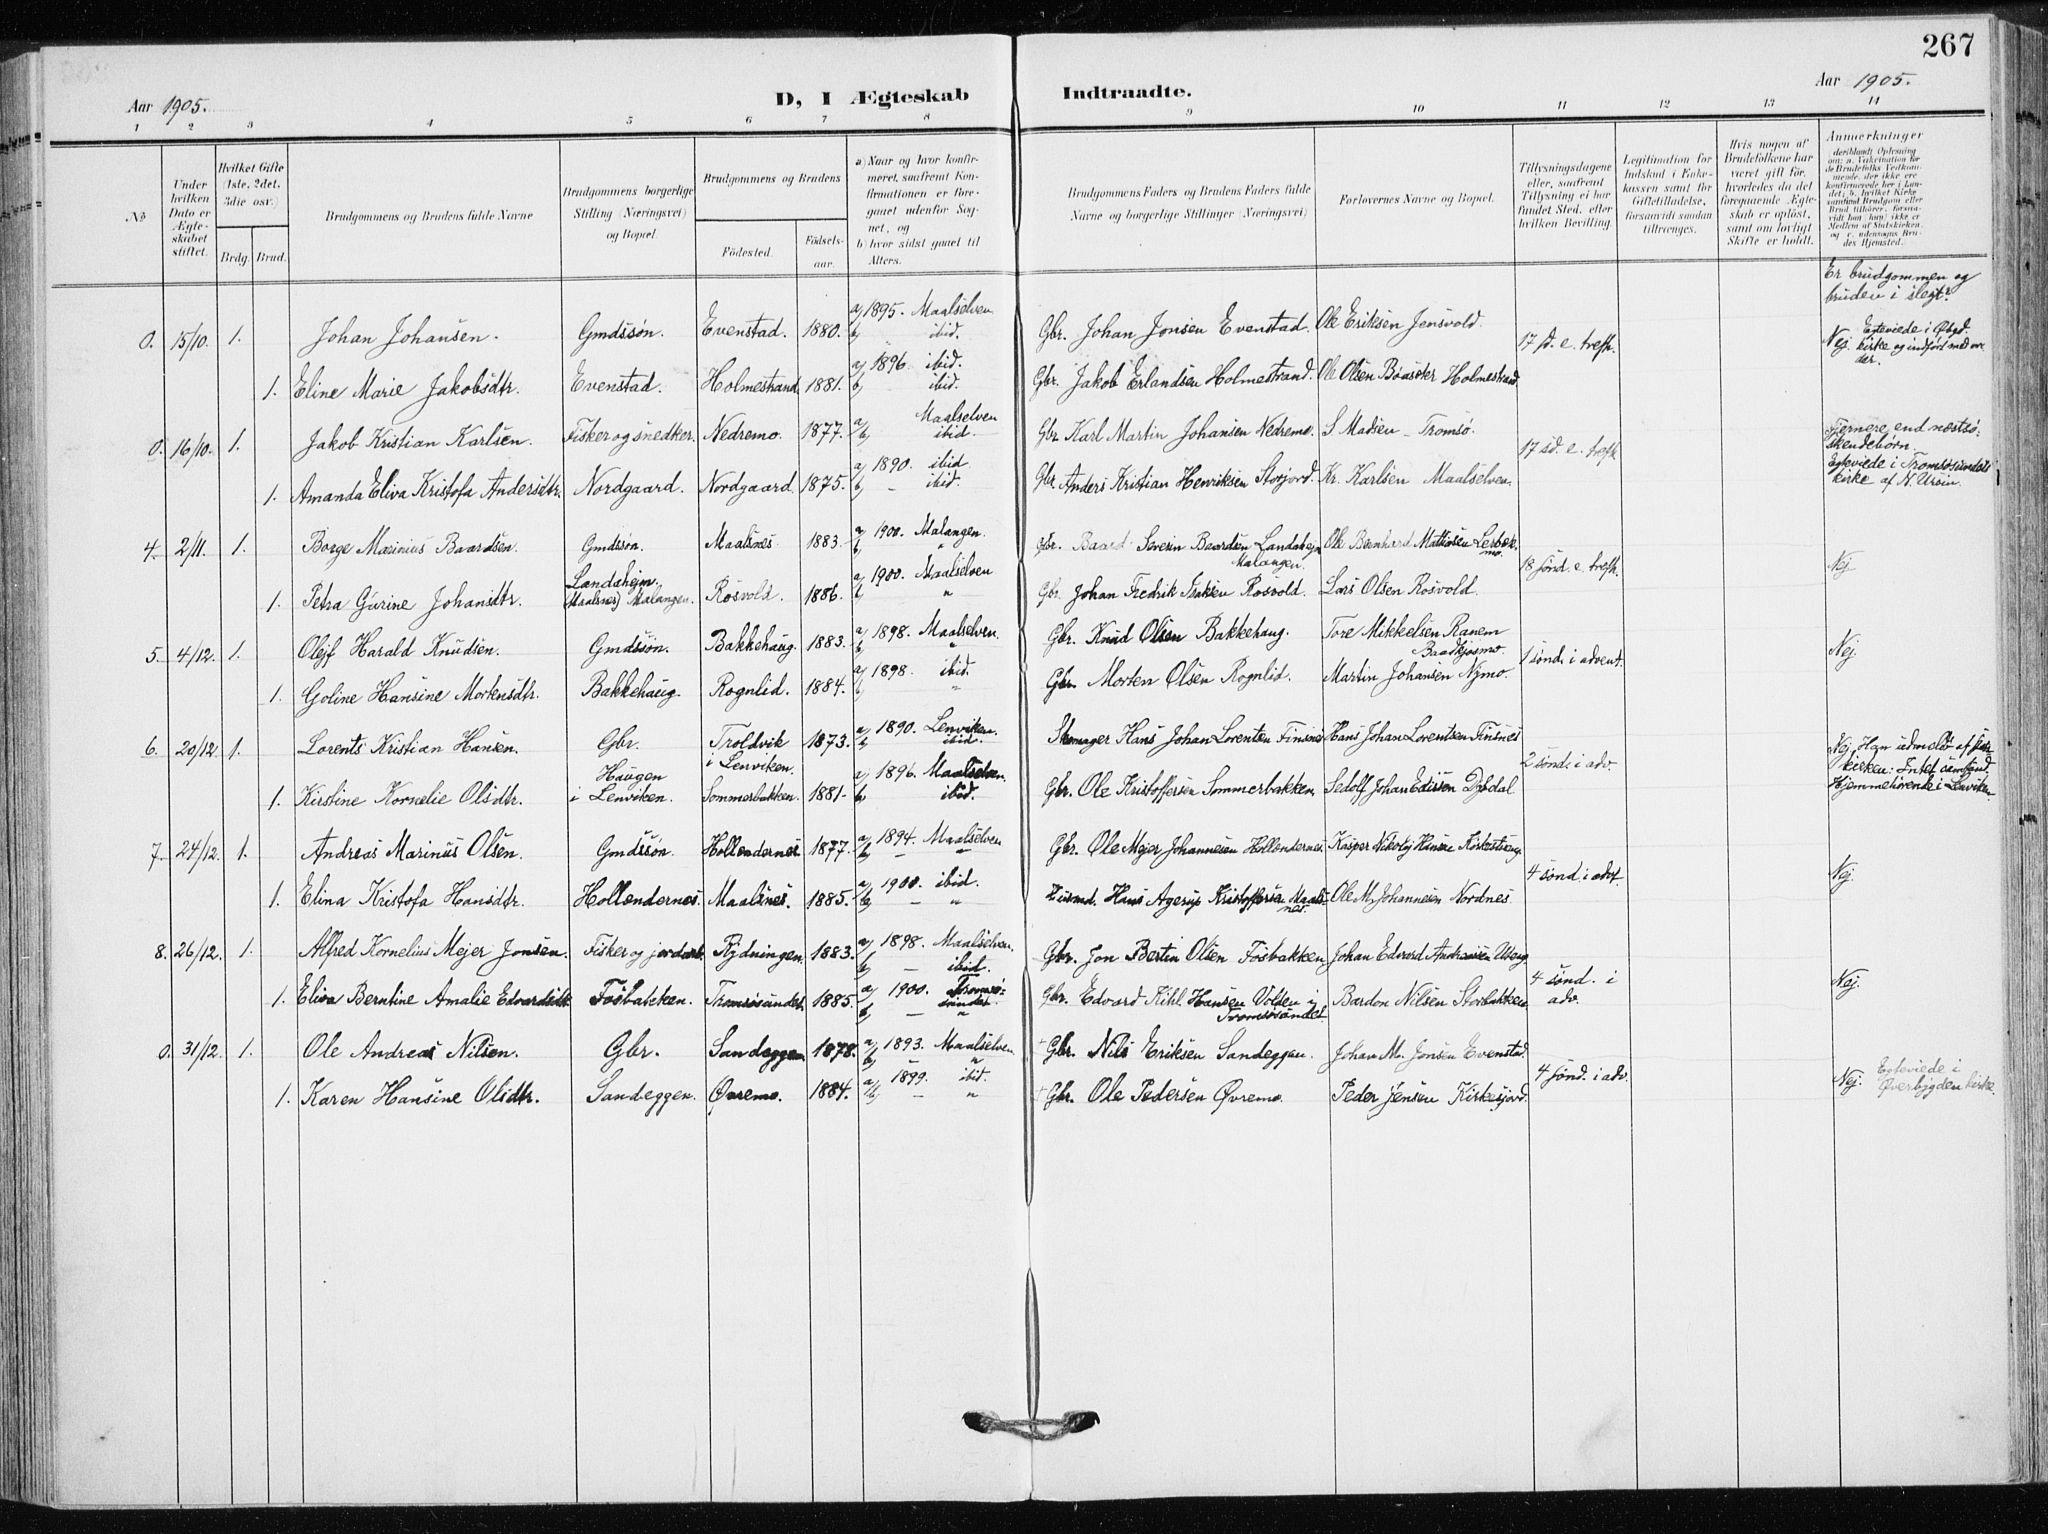 267
Aar 1905.
D, I Ægteskab Indtraadte.
Aar 1905.
1 2 3 4 5 6 7 8 9 10 11 12 13 14
No
Under hvilken Dato er Ægteskabet stiftet.
Hvilket Gifte (1ste, 2det, 3die osv.)
Brdg. Brud.
Brudgommens og Brudens fulde Navne
Brudgommens borgerlige Stilling (Næringsvei) og Bopæl.
Brudgommens og Brudens
Födested.
Födselsaar.
a) Naar og hvor konfirmeret, saafremt Konfirmationen er foregaaet udenfor Sognet, og
b) hvor sidst gaaet til Alters.
Brudgommens Faders og Brudens Faders fulde Navne og borgerlige Stillinger (Næringsvei)
Forlovernes Navne og Bopæl.
Tillysningsdagene eller, saafremt Tillysning ei har fundet Sted, efter hvilken Bevilling.
Legitimation for Indskud i Enkekassen samt for Giftetilladelse, forsaavidt saadan tiltrænges.
Hvis nogen af Brudefolkene har været gift før, hvorledes da det foregaaende Ægteskab er opløst, samt om lovligt Skifte er holdt.
Anmerkninger
deriblandt Oplysning om: a. Vakcination for de Brudefolks Vedkommende, der ikke ere konfirmerede her i Landet; b. hvilket Kirkesamfund Brudgom eller Brud tilhörer, forsaavidt han (hun) ikke er Medlem af Statskirken, og c. udensogns Brudes Hjemsted.
Er brudgommen og bruden i slegt?
0. 15/10. 1. Johan Johansen. Gmdssøn. Evenstad. 1880. a/ 1895. Maalselven b/ ibid. Gbr. Johan Jonsen Evenstad. Ole Eriksen Jensvold. 17 sd. e. trefh. Nej Egteviede i Øbgd. kirke og indført
1. Eline Marie Jakobsdtr. Evenstad. Holmestrand 1881. a/ 1896. ibid. b/ ibid. Gbr. Jakob Erlandsen Holmestrand. Ole Olsen Holmestrand
0. 16/10. 1. Jakob Kristian Karlsen. Fisker og snedker. Nedremo. 1877. a/ Maalselven b/ ibid. Gbr. Karl Martin Johansen Nedremo. S. Madsen – Tromsø. 17 sd. e. trefh. Fjernere end næstsøskendebørn. Egteviede i Tromsøsundets kirke af
1. Amanda Eliva Kristofa Andersdtr. Nordgaard. Nordgaard. 1875. a/ 1890. ibid b/ – ibid. Gbr. Anders Kristian Henriksen Storjord. Kr. Karlsen Maalselven.
4. 2/11. 1. Borge Marinius Baardsen. Gmdssøn. Maalsnes. 1883. a/ 1900. Malangen. b/ " Gbr. Baard Severin Baardsen Landahejm Malangen. Ole Bernhard Mathisen Lerbækmo. 18 sønd. e. trefh. Nej
1. Petra Gurine Johansdtr. Landahejm (Maalsnes) Malangen. Rosvold. 1886. a/ 1900. Maalselven b/ " Gbr. Johan Fredrik Rosvold. Lars Olsen Rosvold.
5. 4/12. 1. Olejf Harald Knudsen. Gmdssøn. Bakkehaug. 1883. a/ 1898. Maalselven. b/ " Gbr. Knud Olsen Bakkehaug. Tore Mikkelsen Ranem 1 sønd. i advent. Nej
1. Goline Hansine Mortensdtr. Bakkehaug. Rognlid. 1884. a/ 1898. ibid. b/ " Gbr. Morten Olsen Rognlid. Martin Johansen Nymo.
6. 20/12 1. Lorents Kristian Hansen. Gbr. Troldvik i Lenviken. 1873. a/ 1890. Lenviken. b/ ibid. Skomager Hans Johan Lorentsen Finsnes Hans Johan Lorentsen Finsnes 2 sønd. i adv. Nej. Han udmeldt af kirken. Hjemmehørende i Lenviken
1. Kirstine Kornelie Olsdtr. Haugen i Lenviken. Sommerbakken. 1881. a/ 1896. Maalselven. b/ ibid. Gbr. Ole Kristoffersen Sommerbakken. Sedolf Johan Dybdal
7. 24/12. 1. Andreas Marinus Olsen. Gmdssøn. Hollendernes. 1877. a/ 1894. Maalselven b/ – " Gbr. Ole Mejer Johannesen Hollendernes. Kasper Nikolaj Hansen 4 sønd. i advt. Nej.
1. Elina Kristofa Hansdtr. Hollendernes. Maalsnes. 1885. a/ 1900. ibid. b/ – " Husmd. Hans Agerup Kristoffersen Maalsnes. Ole M. Johannesen Nordnes.
8. 26/12. 1. Alfred Kornelius Mejer Jonsen. Fisker og jordarb. Rydningen. 1883. a/ 1898. Maalselven. b/ – ibid. Gbr. Jon Bertin Olsen Fosbakken. Johan Edvard 4 sønd. i adv. Nej.
1. Eliva Berntine Amalie Edvardsdtr Fosbakken. Tromsøsundet. 1885. a/ 1900. Tromsøsundet b/ – " Gbr. Edvard Kihl Hansen Volden i Tromsøsundet. Bardon Nilsen Storbakken
0. 31/12. 1. Ole Andreas Nilsen. Gbr. Sandeggen. 1878. a/ 1893. Maalselven. b/ – " Gbr. Nils Eriksen Sandeggen. Johan M. Jonsen Evenstad. 4 sønd. i adv. Nej. Egteviede i Øverbygden kirke.
1. Karen Hansine Olsdtr. Sandeggen. Øvremo. 1884. a/ 1899. ibid. b/ – " Gbr. Ole Pedersen Øvremo. Peder Jensen Kirkesjord.